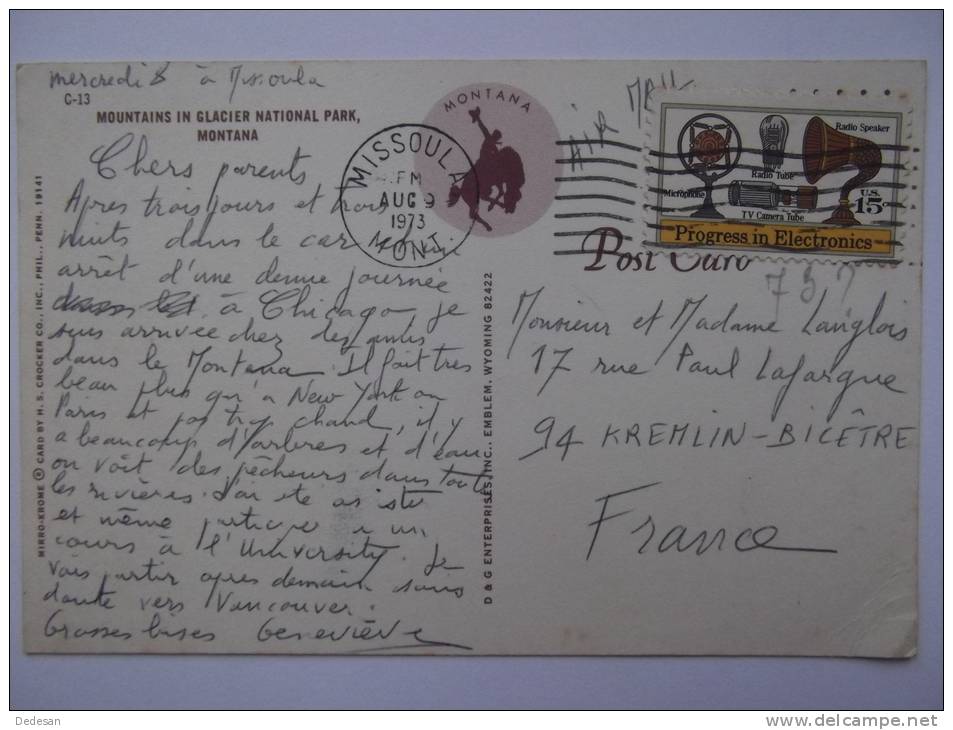 mercredi 8 à Missoula
C-13
MOUNTAINS IN GLACIER NATIONAL PARK,
MONTANA
Chers parents
Apres trois jours et trois
nuits dans le car
arrêt d'une demie journée
à Chicago je
suis arrivée chez des amis
dans le Montana. Il fait tres
beau plus qu'à New York ou
Paris et pas trop chaud, il y
a beaucoup d'arbres et d'eau
on voit des pêcheurs dans toutes
les rivières. J'ai été assister
et même participer à un
cours à l'University. Je
vais partir apres demain sans
doute vers Vancouver.
Grosses bises Geneviève
MIRRO-KROME ® CARD BY H. S. CROCKER CO., INC., PHIL., PENN. 19141
D & G ENTERPRISES, INC., EMBLEM, WYOMING 82422
MONTANA
MISSOULA
PM
AUG 9
1973
MONT.
AIR MAIL
Radio Speaker
Radio Tube
Microphone
TV Camera Tube
U.S.
15c
Progress in Electronics
Post Card
Monsieur et Madame Langlois
17 rue Paul Lafargue
94 KREMLIN-BICÊTRE
France
Dedesan
http://www.delcampe.net